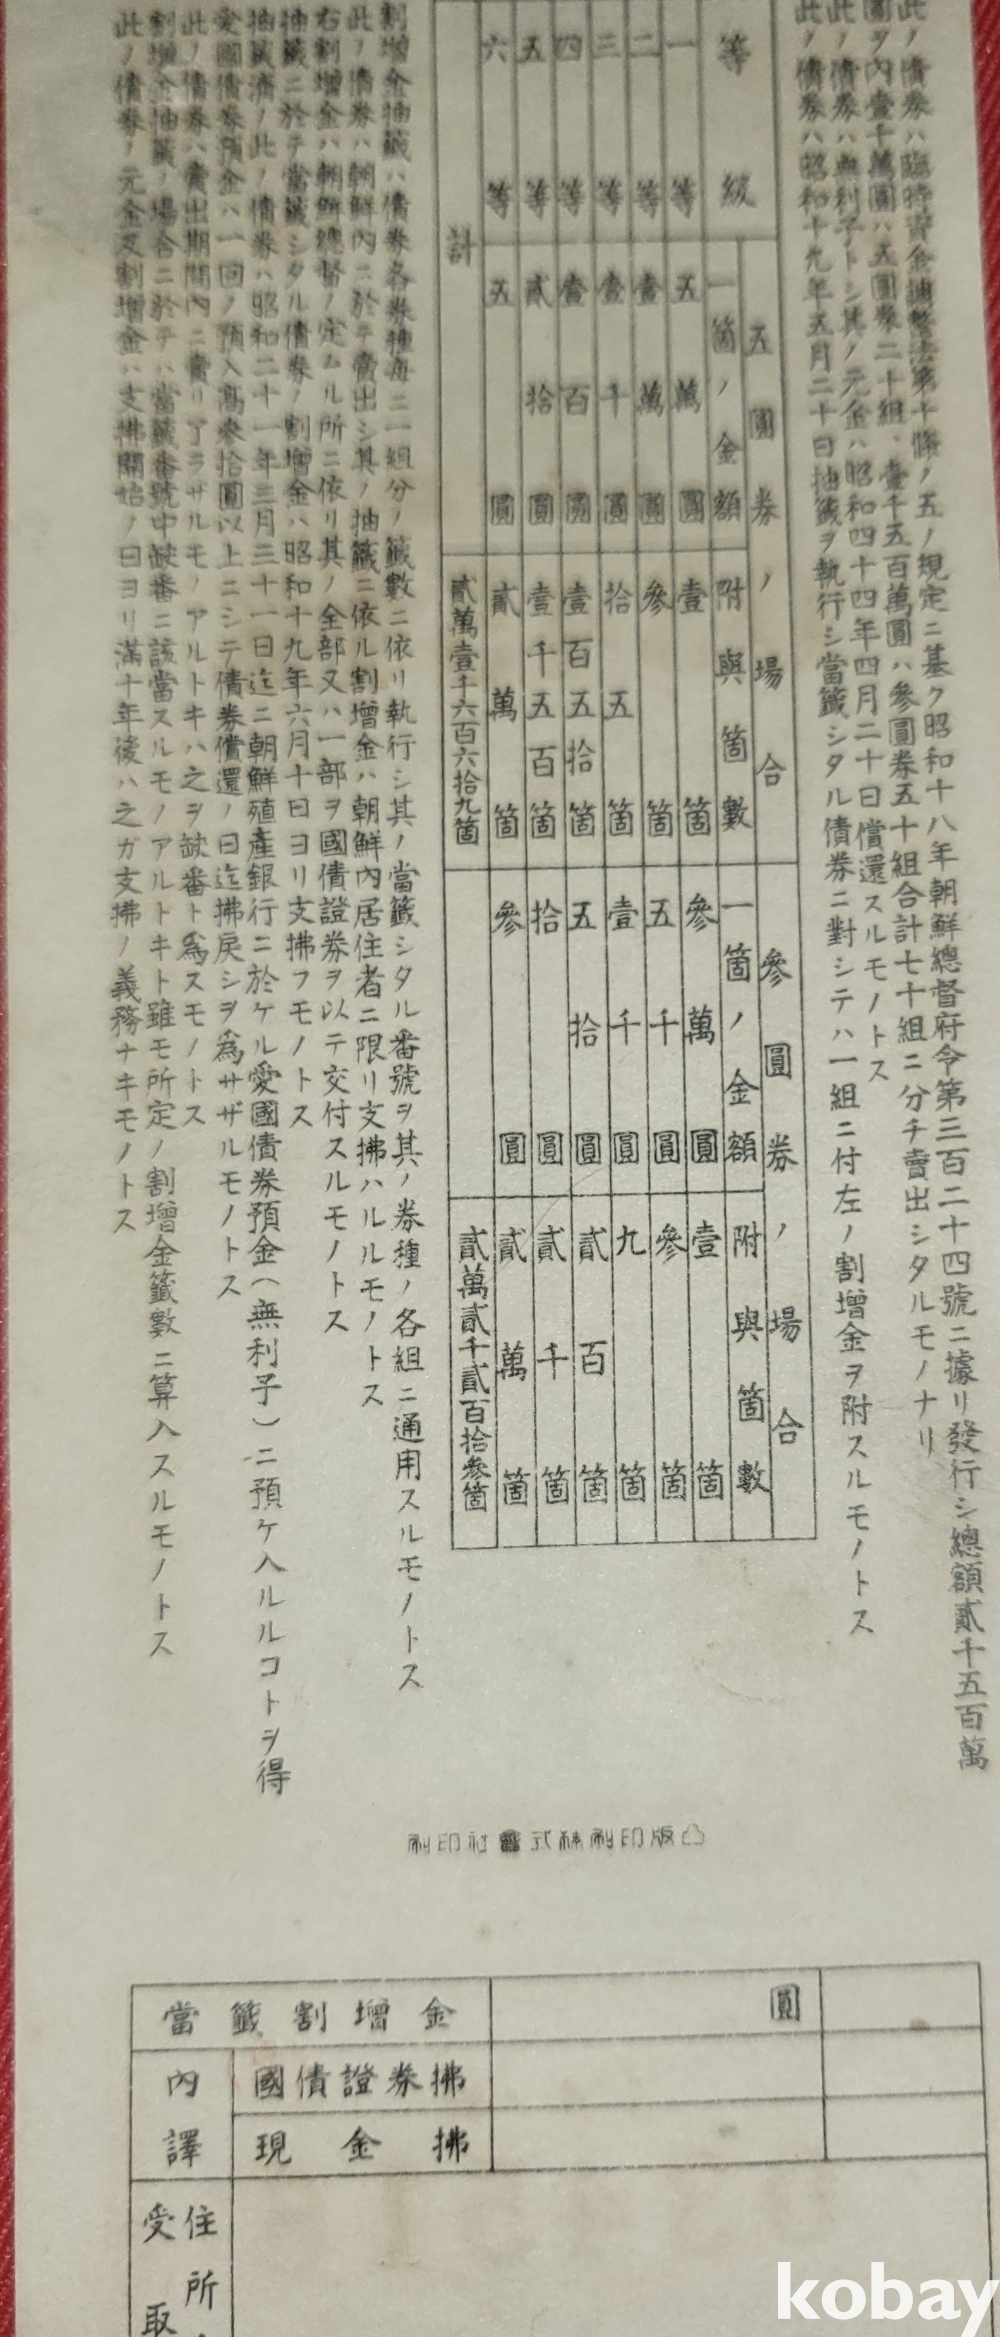 此ノ債券ハ臨時資金調整法第十條ノ五ノ規定ニ基ク昭和十八年朝鮮總督府令第三百二十四號ニ據リ發行シ總額貳千五百萬
圓ヲ內壹千萬圓ハ五圓券二十組、壹千五百萬圓ハ參圓券五十組合計七十組ニ分チ賣出シタルモノナリ
此ノ債券ハ無利子トシ其ノ元金ハ昭和四十四年四月二十日償還スルモノトス
此ノ債券ハ昭和十九年五月二十日抽籤ヲ執行シ當籤シタル債券ニ對シテハ一組ニ付左ノ割增金ヲ附スルモノトス
等級 五圓券ノ場合 參圓券ノ場合
一箇ノ金額 附與箇數 一箇ノ金額 附與箇數
一等 五萬圓 壹箇 參萬圓 壹箇
二等 壹萬圓 參箇 五千圓 參箇
三等 壹千圓 拾五箇 壹千圓 九箇
四等 壹百圓 壹百五拾箇 五拾圓 貳百箇
五等 貳拾圓 壹千五百箇 拾圓 貳千箇
六等 五圓 貳萬箇 參圓 貳萬箇
計 貳萬壹千六百六拾九箇 貳萬貳千貳百拾參箇
割增金抽籤ハ債券各券種每ニ一組分ノ籤數ニ依リ執行シ其ノ當籤シタル番號ヲ其ノ券種ノ各組ニ通用スルモノトス
此ノ債券ハ朝鮮內ニ於テ賣出シ其ノ抽籤ニ依ル割增金ハ朝鮮內居住者ニ限リ支拂ハルルモノトス
右割增金ハ朝鮮總督ノ定ムル所ニ依リ其ノ全部又ハ一部ヲ國債證券ヲ以テ交付スルモノトス
抽籤ニ於テ當籤シタル債券ノ割增金ハ昭和十九年六月十日ヨリ支拂フモノトス
抽籤濟ノ此ノ債券ハ昭和二十一年三月三十一日迄ニ朝鮮殖產銀行ニ於ケル愛國債券預金(無利子)ニ預ケ入ルルコトヲ得
愛國債券預金ハ一回ノ預入高參拾圓以上ニシテ債券償還ノ日迄拂戾シヲ爲サザルモノトス
此ノ債券ハ賣出期間內ニ賣リ了ラサルモノアルトキハ之ヲ缺番ト爲スモノトス
割增金抽籤ノ場合ニ於テハ當籤番號中缺番ニ該當スルモノアルトキト雖モ所定ノ割增金籤數ニ算入スルモノトス
此ノ債券ノ元金及割增金ハ支拂開始ノ日ヨリ滿十年後ハ之ガ支拂ノ義務ナキモノトス
凸版印刷株式會社印刷
當籤割增金 圓
內譯 國債證券拂
現金拂
住所
受取
kobay